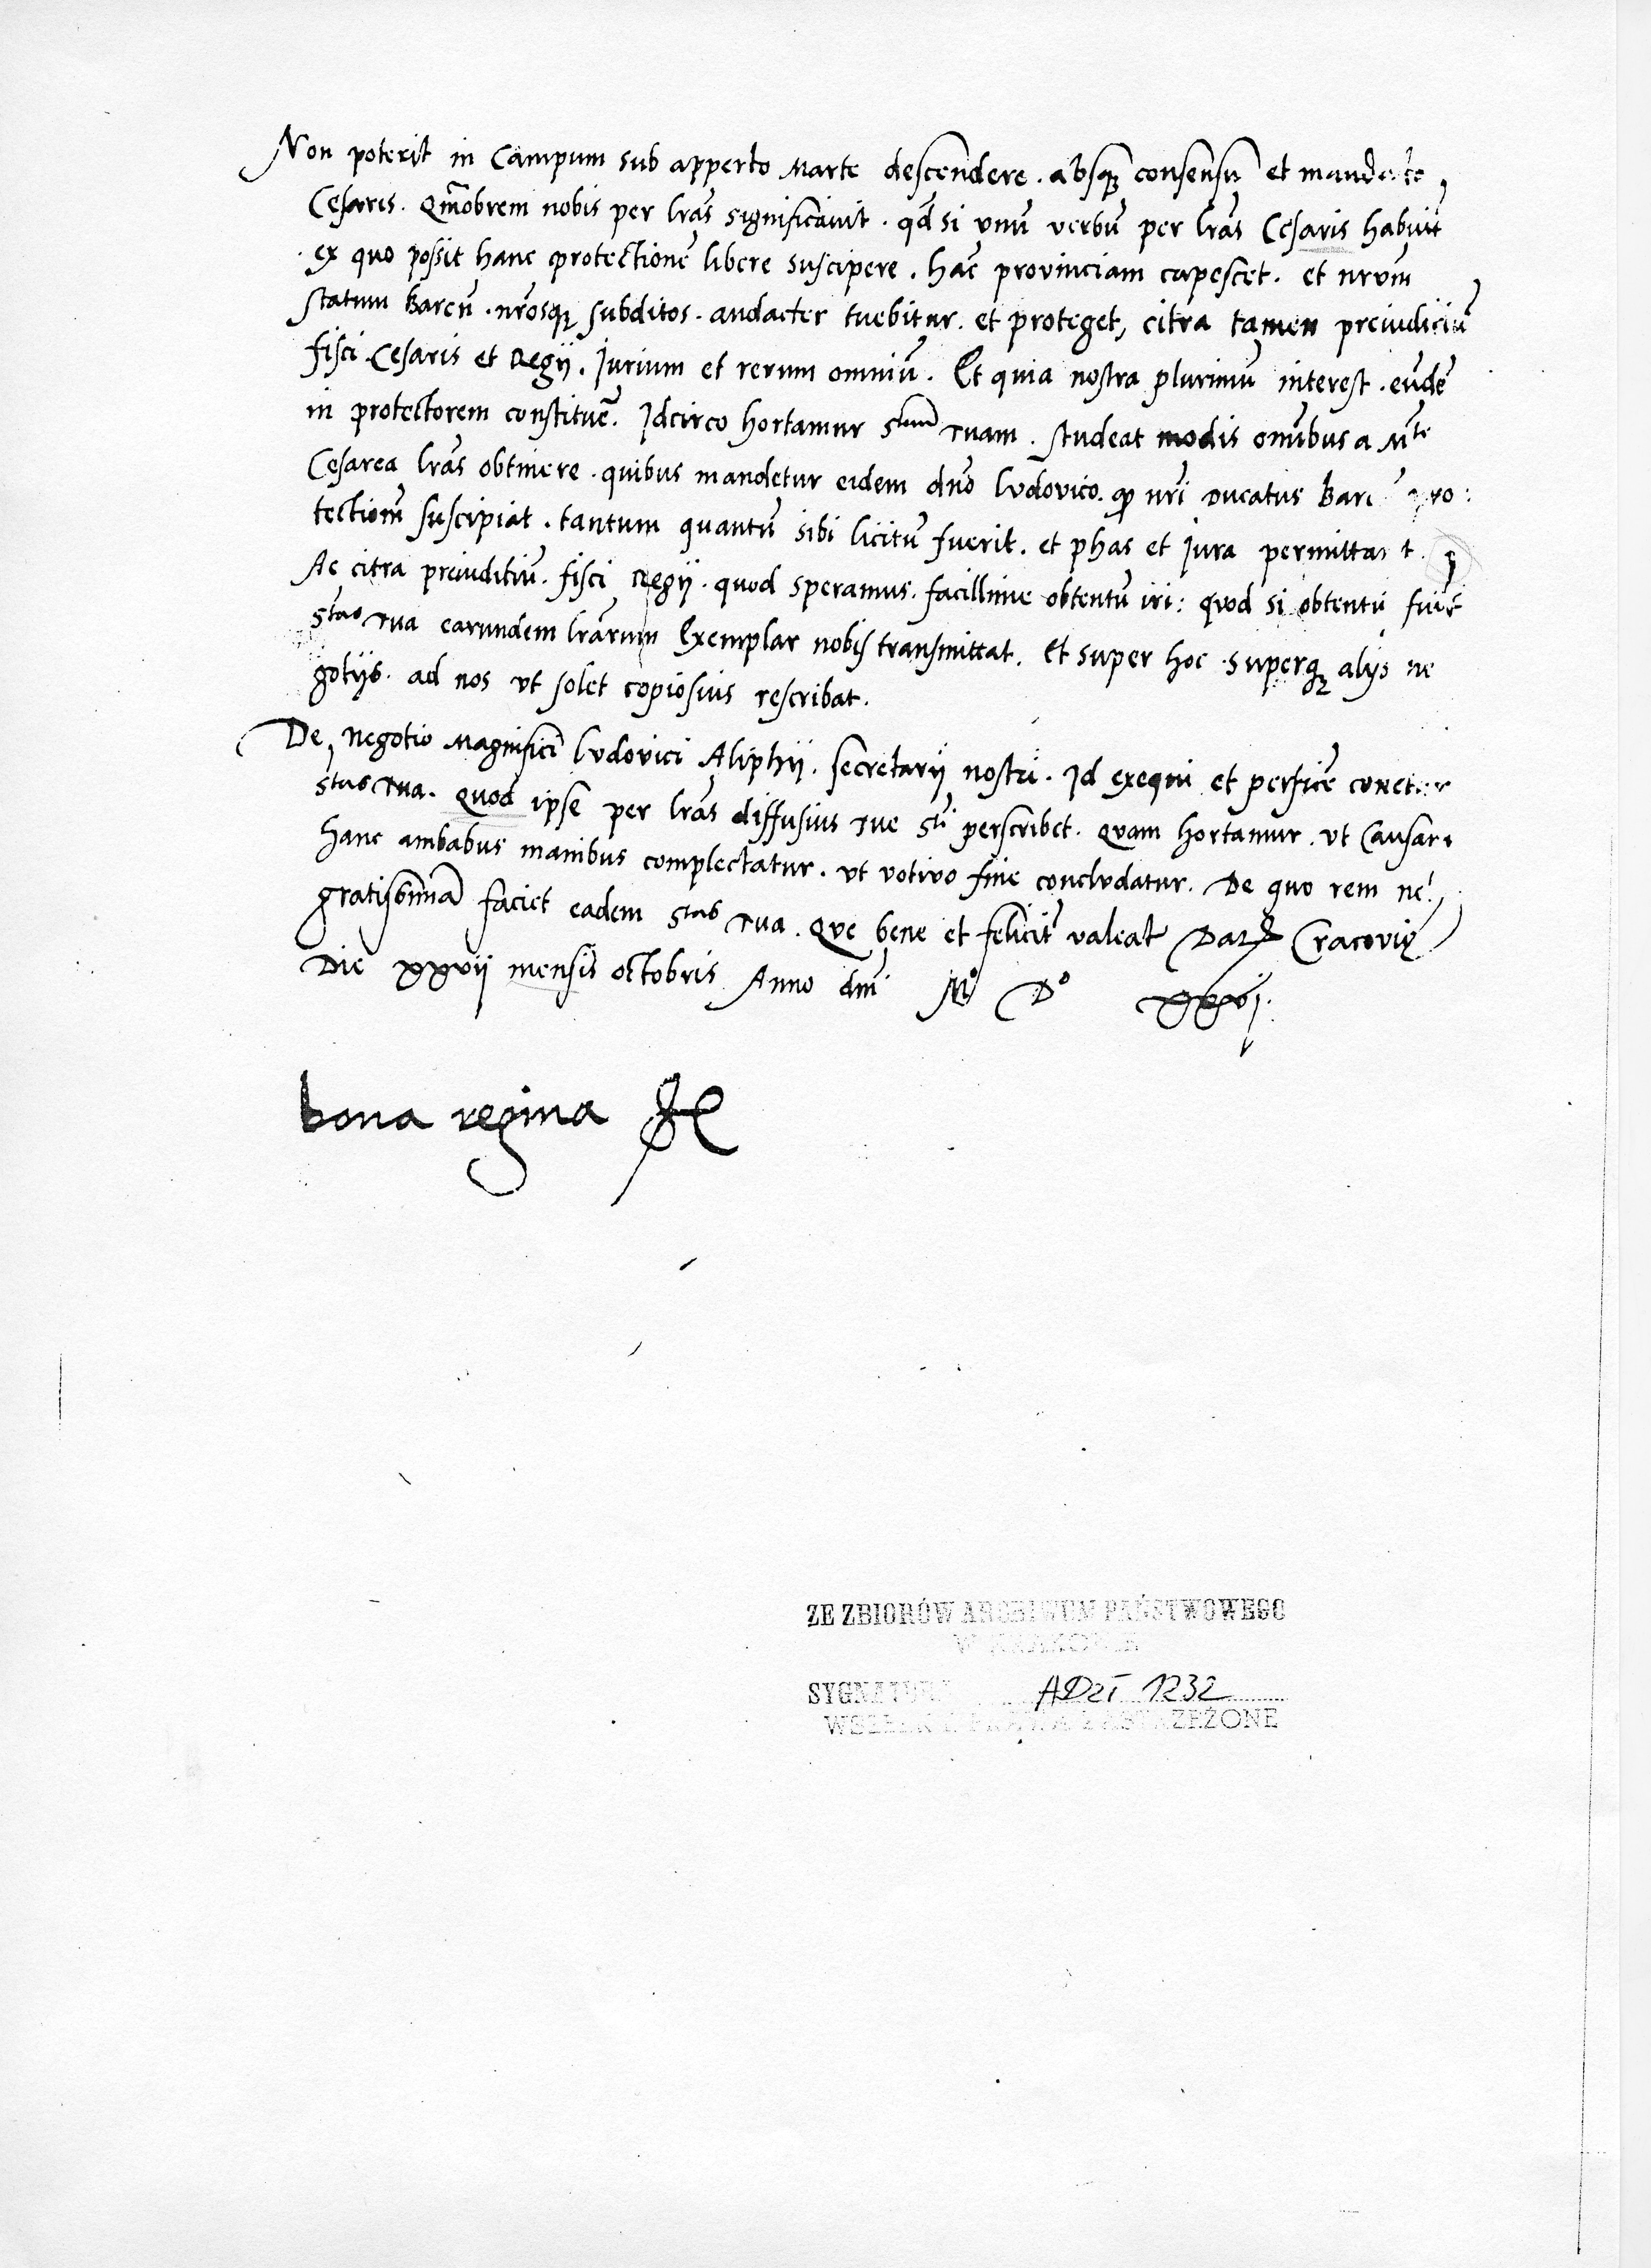 Non poterit in Campum sub apperto Marte descendere. absq; consensu et mandato
Cesaris. Qmobrem nobis per lras significavit. qd si vnu verbu per lras Cesaris habuit
ex quo possit hanc protectione libere suscipere. hac provinciam capescet. et nrum
statum Baren. nrosq; subditos. audacter tuebitur. et proteget, citra tamen preiudiciu
fisci Cesaris et Regij. Jurium et rerum omniu. Et quia nostra plurimu interest. eude
in protectorem constitue. Idcirco hortamur Stem Tuam. studeat modis omibus a Mte
Cesarea lras obtinere. quibus mandetur eidem dno lvdovico. nri Ducatus Bari pro:
tectiom suscipiat. tantum quantu sibi licitu fuerit. et phas et Jura permittant.
Ac citra preiuditiu. fisci Regij. quod speramus. facillime obtentu iri: quod si obtentu
Stas Tua earundem lrarum Exemplar nobis transmittat. Et super hoc. superq; alijs ne
gotijs. ad nos vt solet copiosius rescribat.
De negotio Magnifici lvdovici Aliphij. secretarij nostri. Id exequi et perfice conetur
Stas Tua. Quod ipse per lras diffusius Tue Sti perscribet. Quam hortamur. vt Causam
hanc ambabus manibus complectatur. vt votivo fine conclvdatur. De quo rem
gratissima faciet eadem Stas Tua. Que bene et felicit valeat Dat Cracovię
Die xxvij mensis octobris Anno dni Mo Do
bona regina
ZE ZBIORÓW ARCHIWUM PAŃSTWOWEGO
W KRAKOWIE
SYGNATURA ADzT 1232
WSZELKIE PRAWA ZASTRZEŻONE